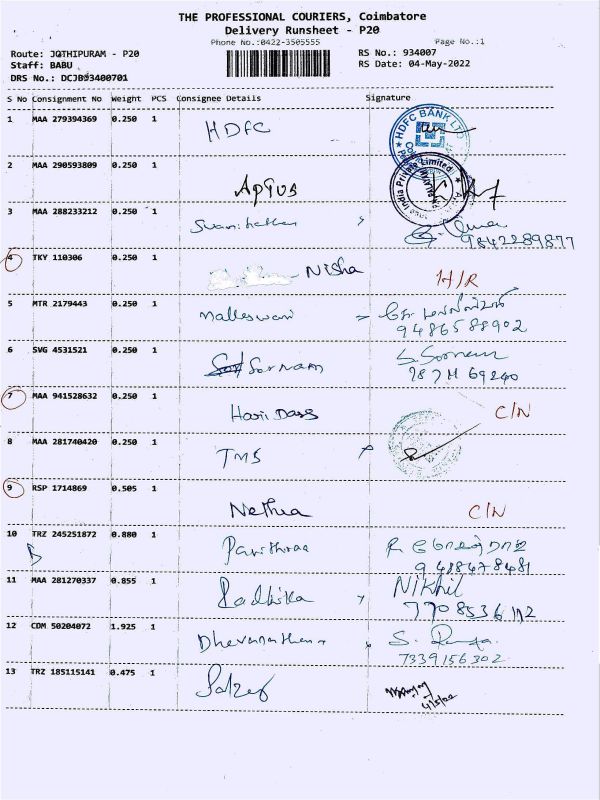 THE PROFESSIONAL COURIERS, Coimbatore
Delivery Runsheet - P20
Phone No.:0422-3505555 Page No.:1
Route: JOTHIPURAM - P20 RS No.: 934007
Staff: BABU RS Date: 04-May-2022
DRS No.: DCJB93400701
S No Consignment No Weight PCS Consignee Details Signature
1 MAA 279394369 0.250 1 HDFC
HDFC BANK LTD
2 MAA 290593809 0.250 1 APTUS
India Private Limited
3 MAA 288233212 0.250 1
9842289877
4 TKY 110306 0.250 1 Nisha H/R
5 MTR 2179443 0.250 1 Malleswari
9486588902
6 SVG 4531521 0.250 1 Sornam S. Sornam
7 MAA 941528632 0.250 1 Hari Dass C/N
8 MAA 281740420 0.250 1 TMB
9 RSP 1714869 0.505 1 Nethra C/N
10 TRZ 245251872 0.880 1 Pavithraa
9488478481
11 MAA 281270337 0.855 1 Radhika Nikhil
12 CDM 50204072 1.925 1
7339156302
13 TRZ 185115141 0.475 1
4/5/22